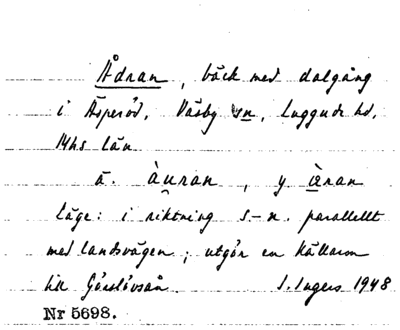 Ådran, bäck med dalgång
i Äsperöd, Väsby sn, Luggude hd,
Mhs län
ä. àuran, y. æ̀ran
Läge: i riktning s-n. parallellt
med landsvägen; utgör en källarm
till Görslövsån. I. Ingers 1948
Nr 5698.